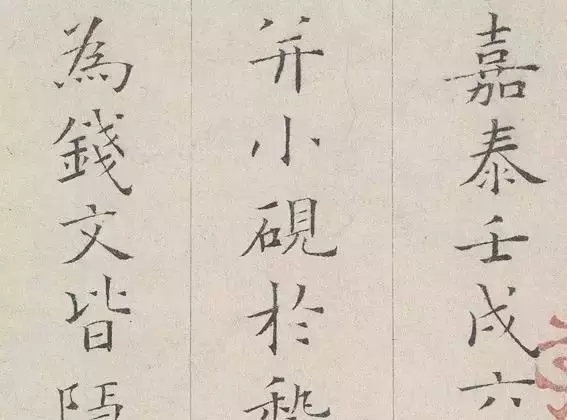 嘉泰壬戌六
并小硯於
為錢文皆